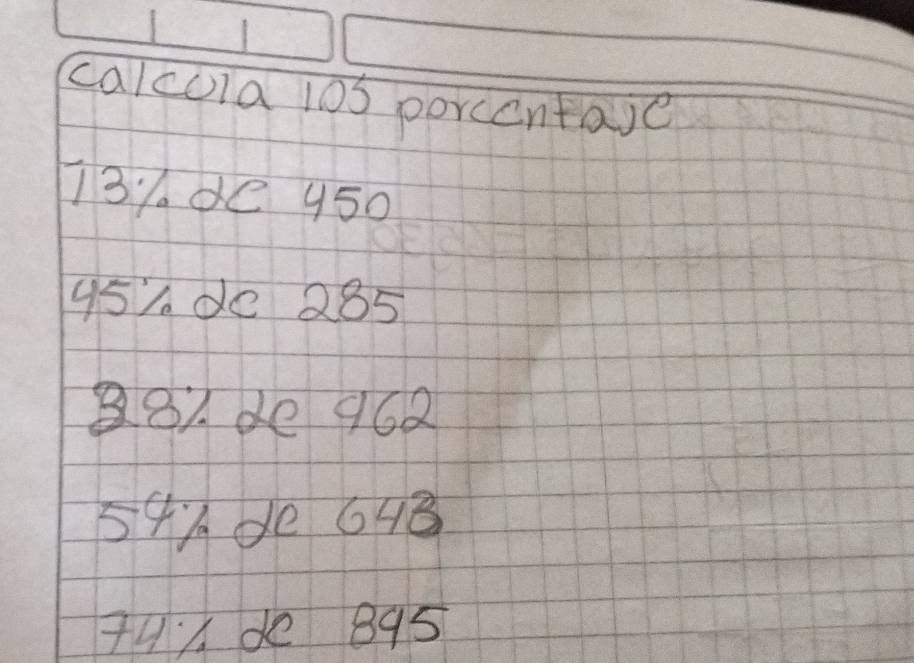 calcula los porcentaje
13% de 450
45% de 285
38% de 962
54% de 648
74% de 895